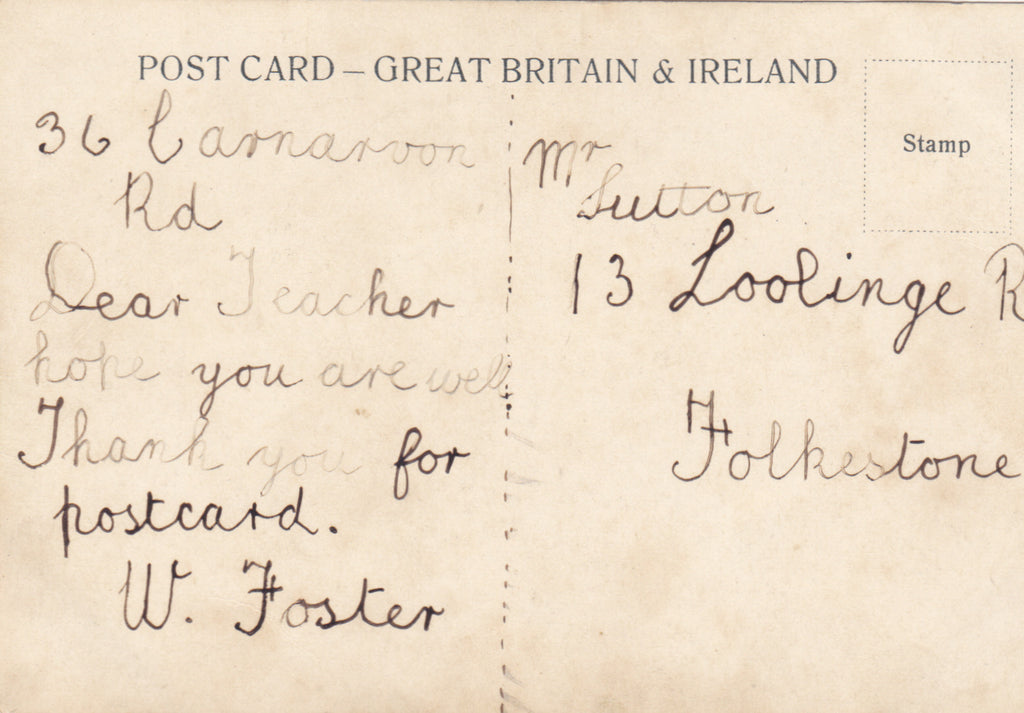 POST CARD – GREAT BRITAIN & IRELAND
Stamp
36 Carnarvon
Rd
Dear Teacher
hope you are well
Thank you for
postcard.
W. Foster
Mr
Sutton
13 Loolinge R
Folkestone